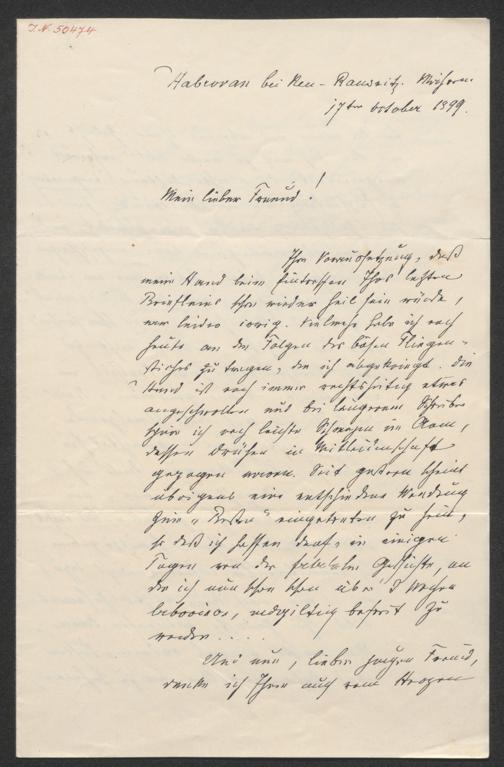 I.N. 50474
Habrovan bei Neu-Raussnitz. Mähren.
17ten October 1899.
Mein lieber Freund!
Ihre Voraussetzung, daß
meine Hand beim Eintreffen Ihres letzten
Briefleins schon wieder heil sein würde,
war leider irrig. Vielmehr habe ich noch
heute an den Folgen des bösen Fliegen-
stiches zu tragen, den ich abgekriegt. Die
Hand ist noch immer rechtsseitig etwas
angeschwollen und bei längerem Schreiben
spüre ich noch leichte Schmerzen im Arm,
dessen Drüsen in Mitleidenschaft
gezogen waren. Seit gestern scheint
übrigens eine entschiedene Wendung
zum "Besten" eingetreten zu sein,
so daß ich hoffen darf, in einigen
Tagen von der Geschichte, an
der ich nun schon über 3 Wochen
laborire, endgiltig befreit zu
werden....
Und nun, lieber junger Freund,
danke ich Ihnen auch vom Herzen